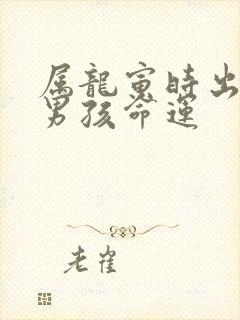 属龍寅時出
男孩命運
老崔